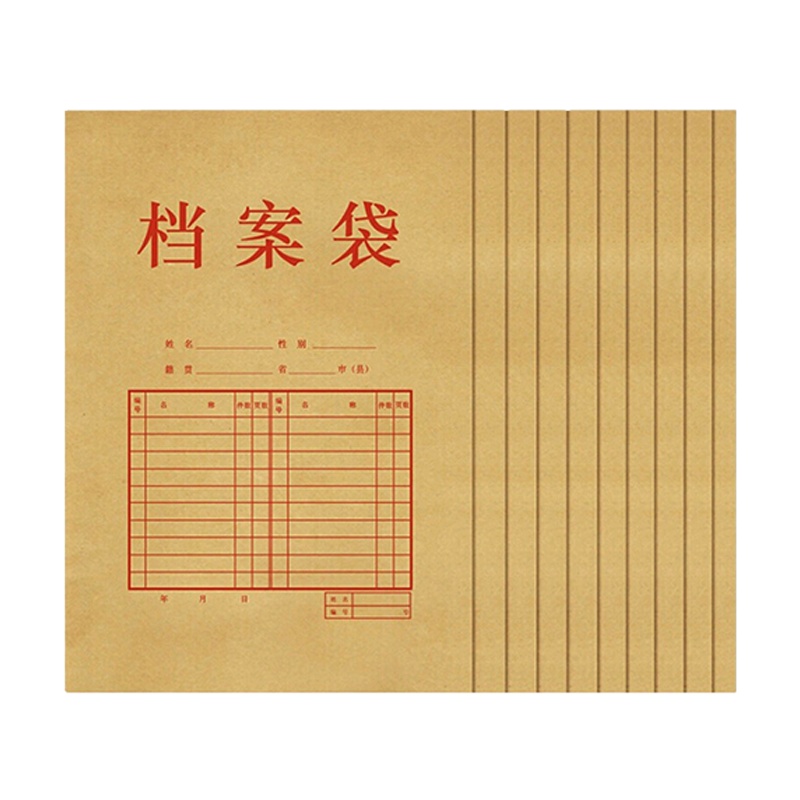 档案袋
姓名 性别
籍贯 省 市(县)
编号 名称 件数 页数 编号 名称 件数 页数
年 月 日
姓名
编号 号